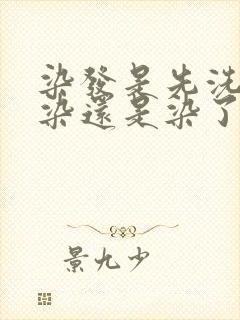 染發是先洗
染還是染了
景九少